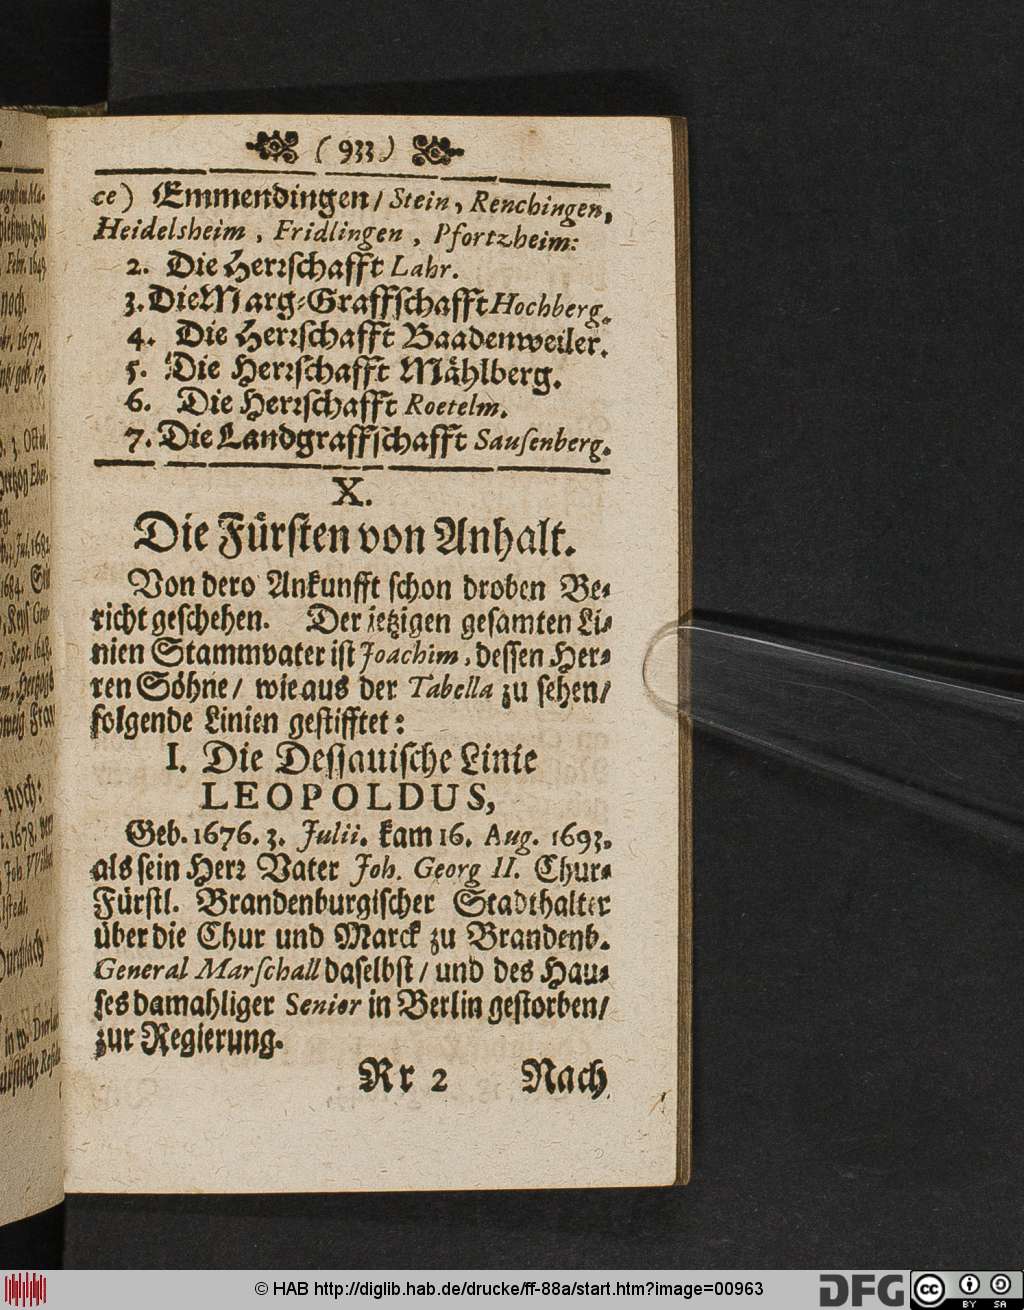 ( 933 )
ce) Emmendingen / Stein, Renchingen,
Heidelsheim, Fridlingen, Pfortzheim:
2. Die Herrschafft Lahr.
3. Die Marg-Graffschafft Hochberg.
4. Die Herrschafft Baadenweiler.
5. Die Herrschafft Mählberg.
6. Die Herrschafft Roetelm.
7. Die Landgraffschafft Sausenberg.
X.
Die Fürsten von Anhalt.
Von dero Ankunfft schon droben Be-
richt geschehen. Der ietzigen gesamten Li-
nien Stammvater ist Joachim, dessen Her-
ren Söhne / wie aus der Tabella zu sehen /
folgende Linien gestifftet:
I. Die Dessauische Linie
LEOPOLDUS,
Geb. 1676. 3. Julii. kam 16. Aug. 1693.
als sein Herr Vater Joh. Georg II. Chur-
Fürstl. Brandenburgischer Stadthalter
über die Chur und Marck zu Brandenb.
General Marschall daselbst / und des Hau-
ses damahliger Senior in Berlin gestorben /
zur Regierung.
Rr 2 Nach
© HAB http://diglib.hab.de/drucke/ff-88a/start.htm?image=00963
DFG cc BY SA